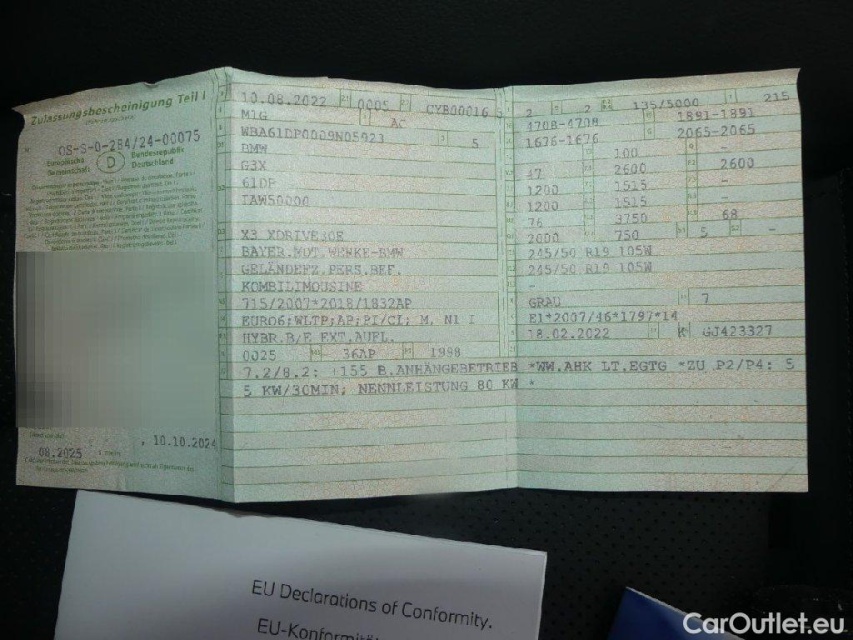 Zulassungsbescheinigung Teil I
OS-S-0-284/24-00075
Europäische Gemeinschaft D Bundesrepublik Deutschland
, 10.10.2024
08.2025
10.08.2022 0005 CYB00016
M1G AC
WBA61DP0009N05923 5
BMW
G3X
61DP
IAW50000
X3 XDRIVE30E
BAYER.MOT.WERKE-BMW
GELÄNDEFZ.PERS.BEF.
KOMBILIMOUSINE
715/2007*2018/1832AP
EURO6;WLTP;AP;PI/CI; M, N1 I
HYBR.B/E EXT.AUFL.
0025 36AP 1998
7.2/8.2: +155 B.ANHÄNGEBETRIEB *WW.AHK LT.EGTG *ZU P2/P4: 5
5 KW/30MIN; NENNLEISTUNG 80 KW *
2 2 135/5000 215
4708-4708 1891-1891
1676-1676 2065-2065
100 -
47 2600 2600
1200 1515 -
1200 1515 -
76 3750 68
2000 750 5 -
245/50 R19 105W
245/50 R19 105W
-
GRAU 7
E1*2007/46*1797*14
18.02.2022 K GJ423327
EU Declarations of Conformity.
CarOutlet.eu